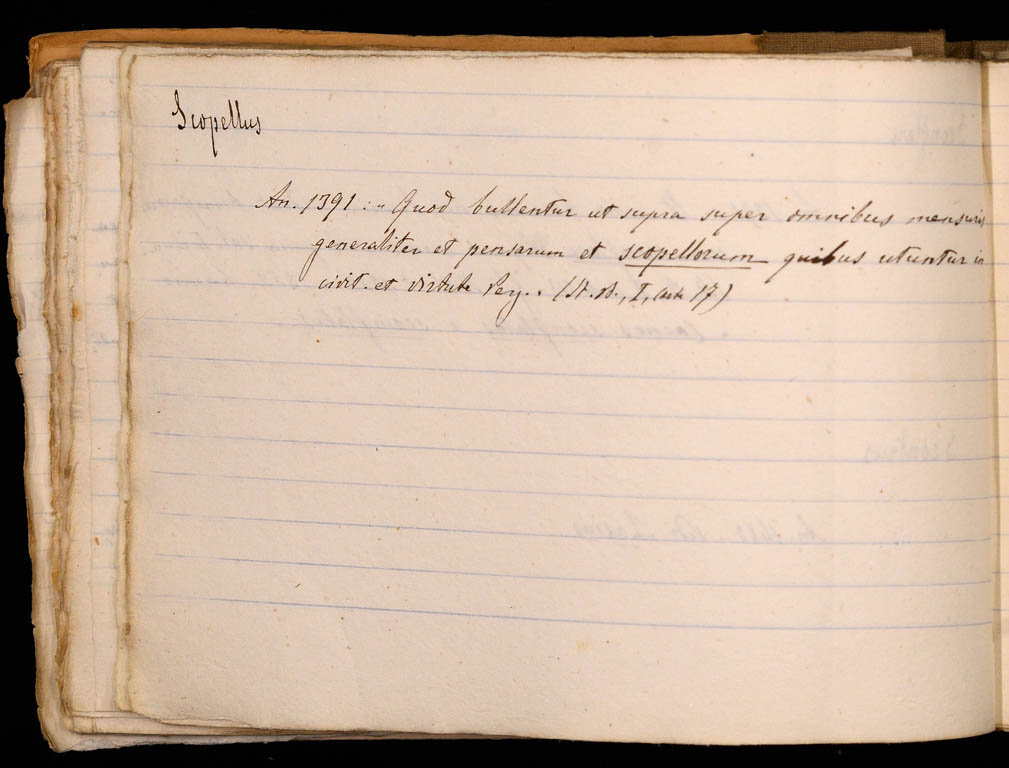 Scopellus
An. 1391 : " Quod bullentur ut supra super omnibus mensuris
generaliter et pensarum et scopellorum quibus utuntur in
civit. et virtute Pey. " (St. M., I, carte 17)